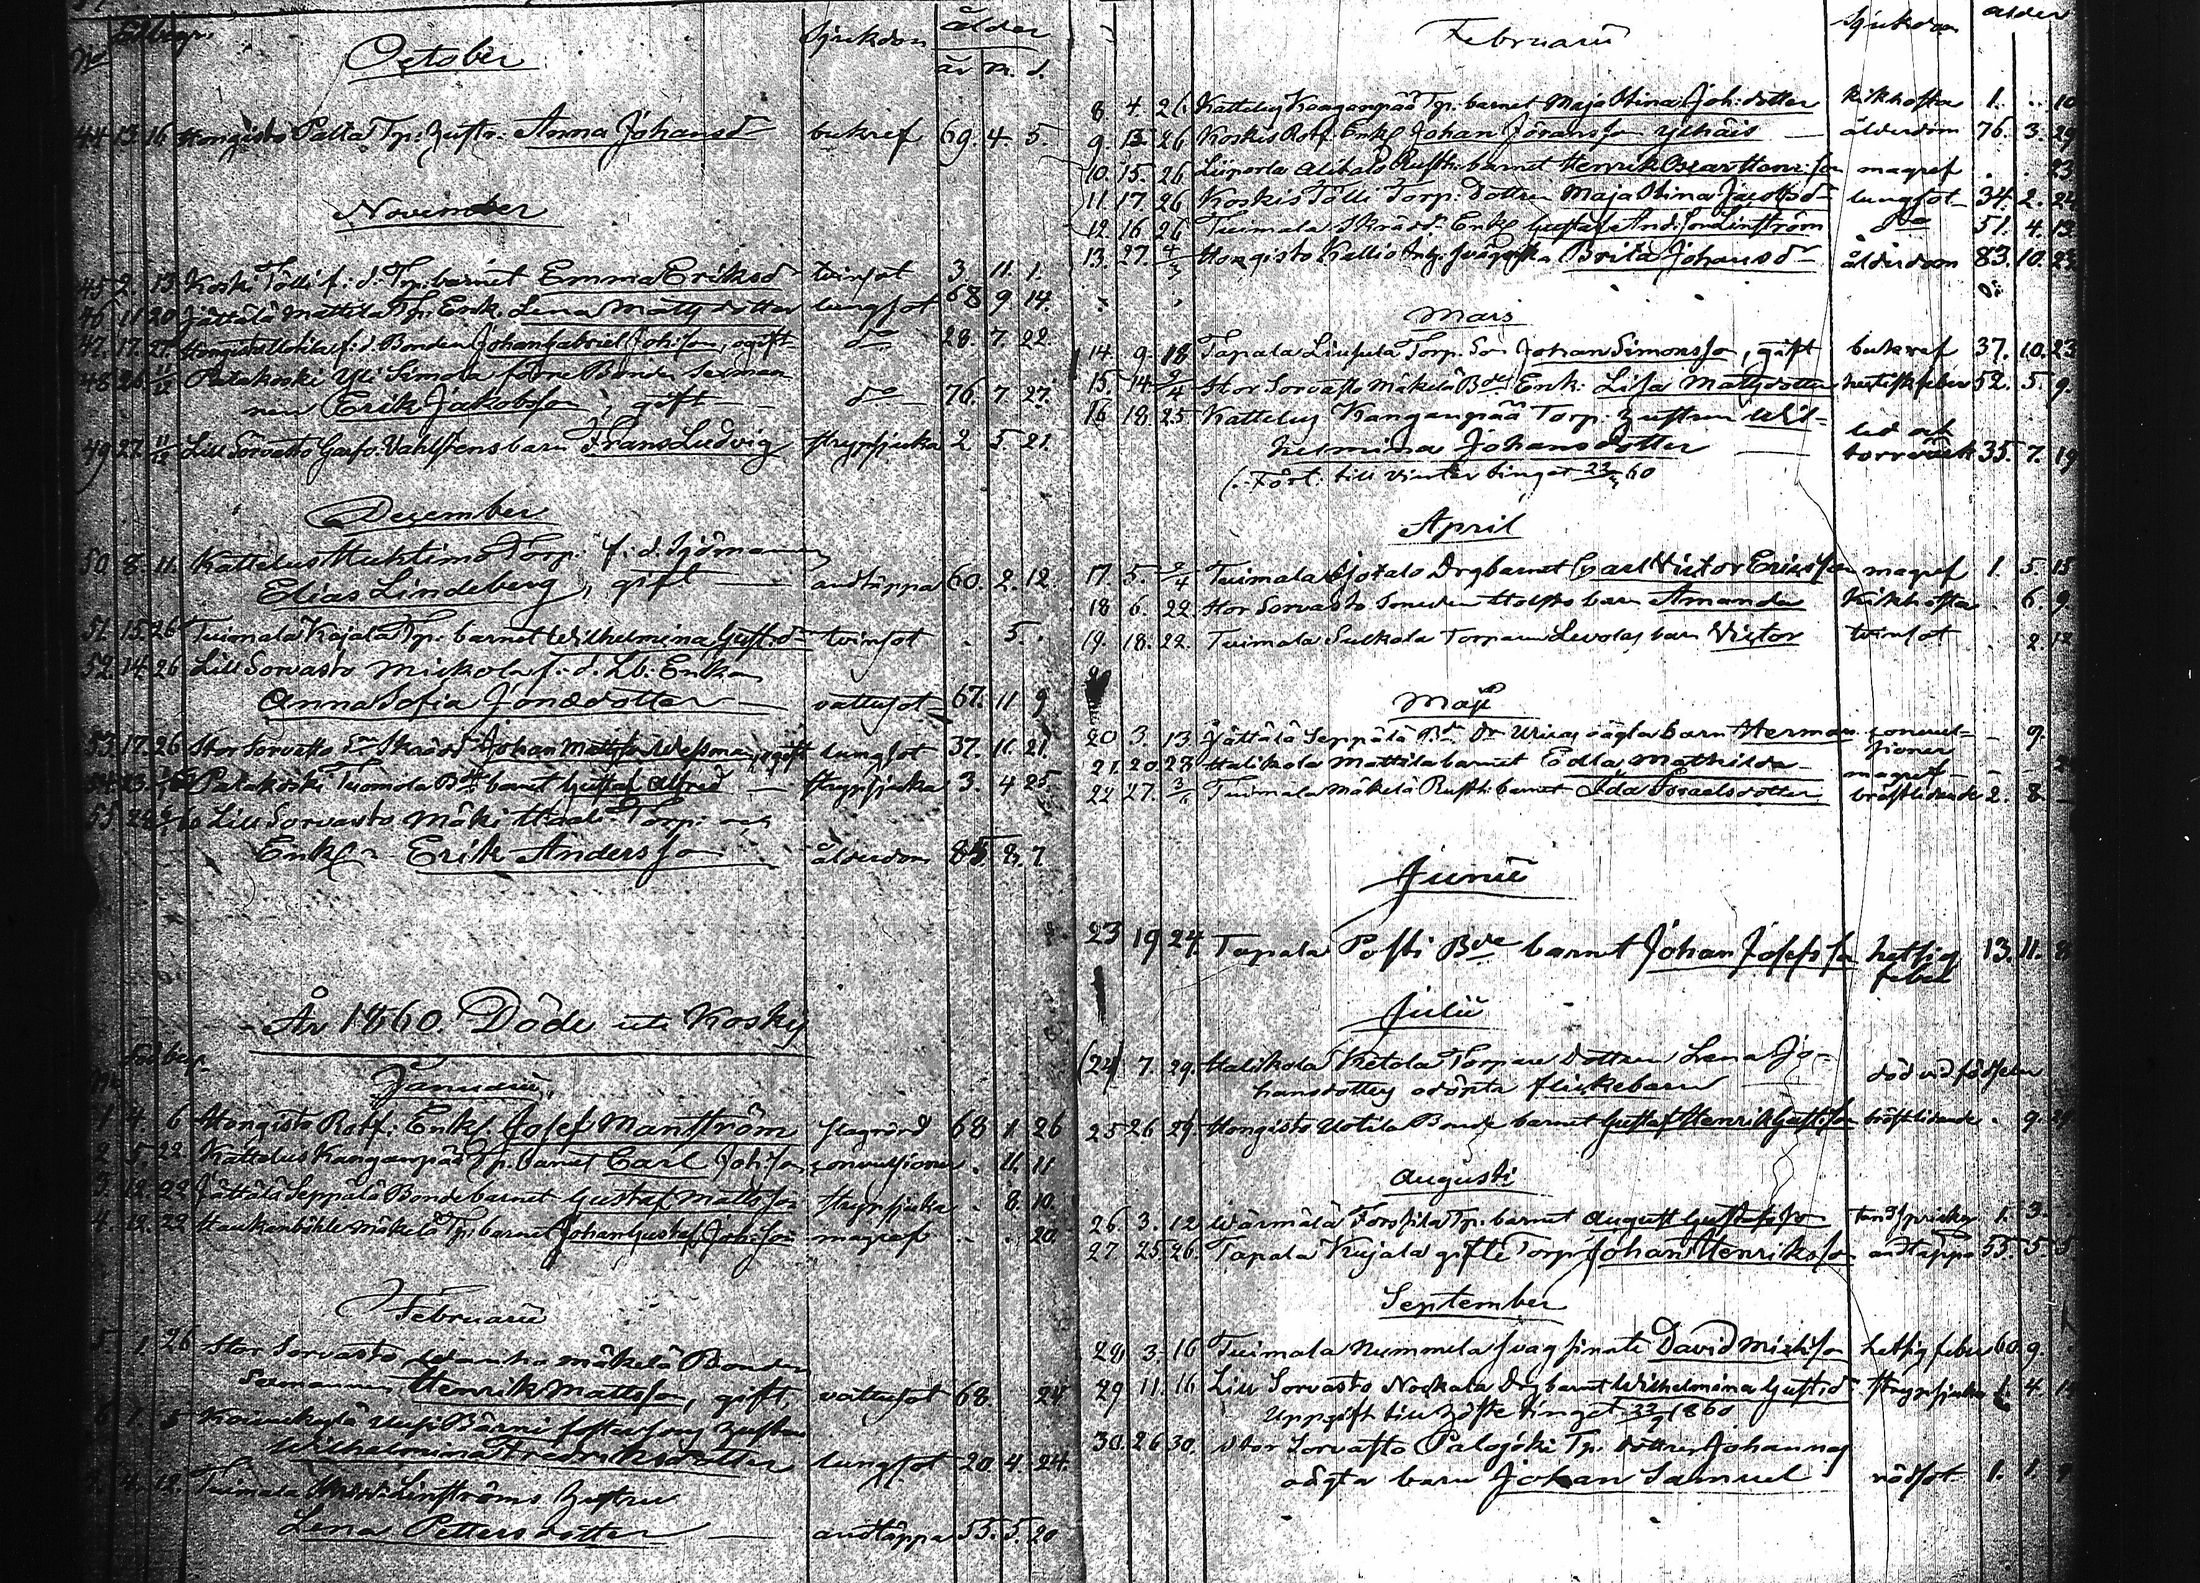 No Död begr. Sjukdom ålder
October år m. d.
44 13. 16. Hongisto Palta Tp: hustr. Anna Johansdr bukref 69. 4. 5.
November
45 2. 13. Koski Tölli f: d: Tp: barnet Emma Eriksdr tvinsot 3. 11. 1.
46. 11 20 Jättälä Mattila Tp: Enk. Lena Mattsdotter lungsot 68 9. 14.
47. 17. 27. Hongisto Uotila f: d: Bonden Johan Gabriel Joh:son, ogift do 28. 7. 22.
48 26 11/12 Palakoski Yli Simola förre Bonden Sexman
nen Erik Jakobsson, gift do 76. 7 27.
49 27. 11/12 Lill Sorvasto Wahlstens barn Frans Ludvig strypsjuka 2 5. 21.
December
50 8. 11. Kattelus Huhtimo Torp: f: d. Sjöman
Elias Lindeberg, gift andtäppa 60. 2. 12
51. 15. 26 Tuimala Kajala Tp: barnet Wilhelmina Gust:dr tvinsot . 5. .
52. 14. 26 Lill Sorvasto Mickola f: d. Lb: Enkan
Anna Sofia Jonædotter vattusot 67. 11 9
53. 17. 26 Stor Sorvasto Skrädd Johan Mattsson Wessman, ogift lungsot 37. 11. 21.
Palakoski Tuomola Bde barnet Gustaf Alfred strypsjuka 3. 4 25.
55 Lill Sorvasto Mäki Torp:
Enkl: Erik Andersson ålderdom 85. 8. 7
År 1860. Döde uti Koskis
No Död begr.
Januarii
1 4. 6 Hongisto Rotf: Enkl. Josef Manström slagrörd 68 11 26
2 5. 22. Kattelus Kanganpää Tp. barnet Carl Joh:son convulsioner . 11. 11
3. 12. 22 Jättälä Seppälä Bonde barnet Gustaf Mattsson strypsjuka . 8. 10.
4. 12. 22 Haukanköhle Mäkelä Tp: barnet Johan Gustaf Joh:son magref . . 20.
Februarii
5. 1. 26 Stor Sorvasto Wanha Mäkelä Bonden
Sexmannen Henrik Mattsson, gift, vattusot 68. 24
6 1. 5 Koivukylä Uusi Bärni hustrun
Wilhelmina Fredriksdotter lungsot 20. 4. 24.
Tuimala Linströms hustru
Lena Pettersdotter andtäppa 55. 5. 20
Februarii Sjukdom ålder
8 4. 26. Kattelus Kanganpää Tp. barnet Maja Stina Joh:dotter kikhosta 1. . 10
9. 13. 26 Koskis Rotf. Enkl Johan Göransson ålderdom 76. 3. 29
10. 15. 26 Liipola Alitalo Rusth: barnet Henrik Oscar Henr:son magref . . 23
11. 17 26 Koskis Tölli Torp: dottren Maja Stina Jacobsdr lungsot 34. 2. 22
12 16 26 Tuimala Skrädd: Enkl Gustaf And:son Linström do 51. 4. 12
13. 27. 4/3 Hongisto Kallio Brita Johansdr ålderdom 83. 10. 23
Mars
14. 9. 18 Tapala Liusula Torp. Son Johan Simonsson, gift bukref 37. 10. 23
15. 14 9/4 Stor Sorvasto Mäkelä Bde Enk: Lisa Mattsdotter hectisk feber 52. 5. 9.
16 18. 25 Kattelus Kangangää Torp: hustrun Wil-
helmina Johansdotter led och torrvärk 35. 7. 19
(. Fört: till vinter tinget 23/3 60
April
17. 5. 9/4 Tuimala Isotalo Drg barnet Carl Victor Ericsson magref 1. 5. 15
18 6. 22. Stor Sorvasto Smeden barn Amanda kikhosta . 6. 9.
19. 18. 22. Tuimala Sulkala Torparn Levolas barn Victor tvinsot . 2. 12
Maji
20 3. 13 Jättälä Seppälä Bde Dr Ulricas oägta barn Herman convul-
sioner - 9.
21. 20. 28 Halikola Mattila barnet Edla Mathilda magref - - 2
22 27. 3/6 Tuimala Mäkelä Rusth: barnet Ida Israelsdotter bröstlidande 2. 8. -
Junii
23 19 24. Tapala Posti Bde barnet Johan Josefsson hetsig feber 13. 11. 8
Julii
(24) 7. 29. Halikola Ketola Torpare Dottren Lena Jo-
hansdotters odöpta flickebarn död vid födseln
25 26 29 Hongisto Uotila Bonde barnet Gustaf Henrik Gustfson bröstlidande . 9. 21
Augusti
26 3. 12 Wärmälä Forssila Tp: barnet August Gustafsson tandsprickn 1. 3.
27. 25. 26 Tapala Kujala gifte Torp: Johan Henriksson andtäppa 55. 5 5
September
28 3. 16 Tuimala Nummela svagsinnte David Mickson hetsig feber 60. 9.
29 11. 16 Lill Sorvasto Nockala Drg barnet Wilhelmina Gustdr strypsjuka 4.
Uppgift till höste tinget 22/9 1860
30. 26 30. Stor Sorvasto Palojoki Tp: dottren Johannas
oägta barn Johan Samuel rödsot 1. 1. 4